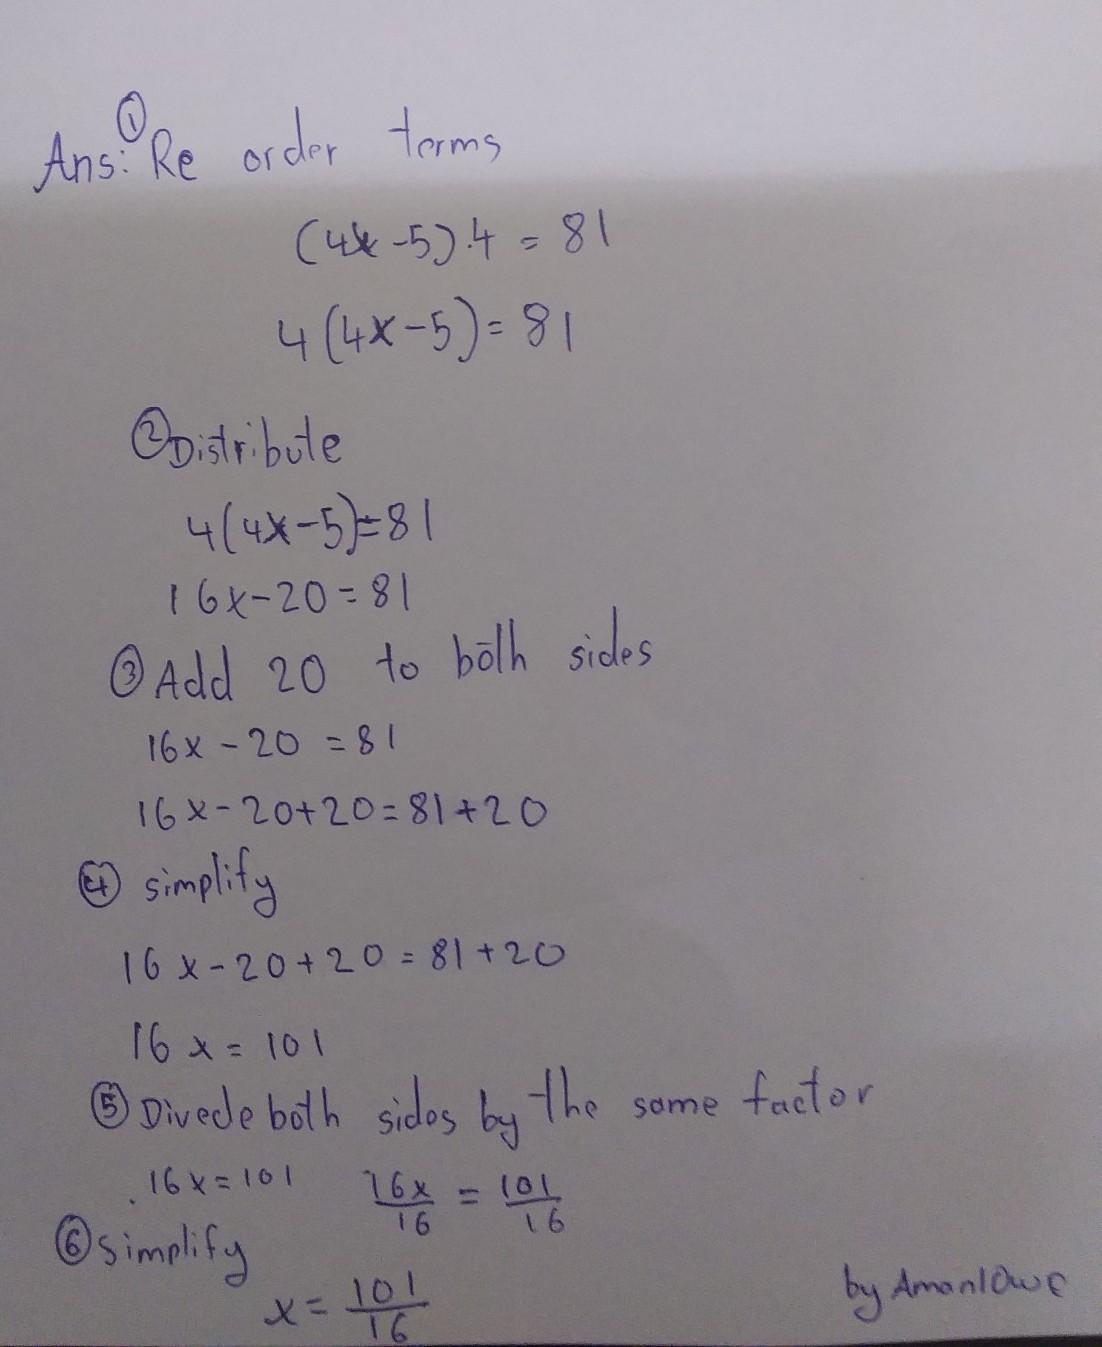 Ans: ① Re order terms
(4x-5).4 = 81
4(4x-5)= 81
② Distribute
4(4x-5)=81
16x-20=81
③ Add 20 to both sides
16x-20 =81
16x-20+20=81+20
④ simplify
16x-20+20=81+20
16x=101
⑤ Divede both sides by the same factor
16x=101 16x/16 = 101/16
⑥ simplify
x= 101/16
by Amanlowe